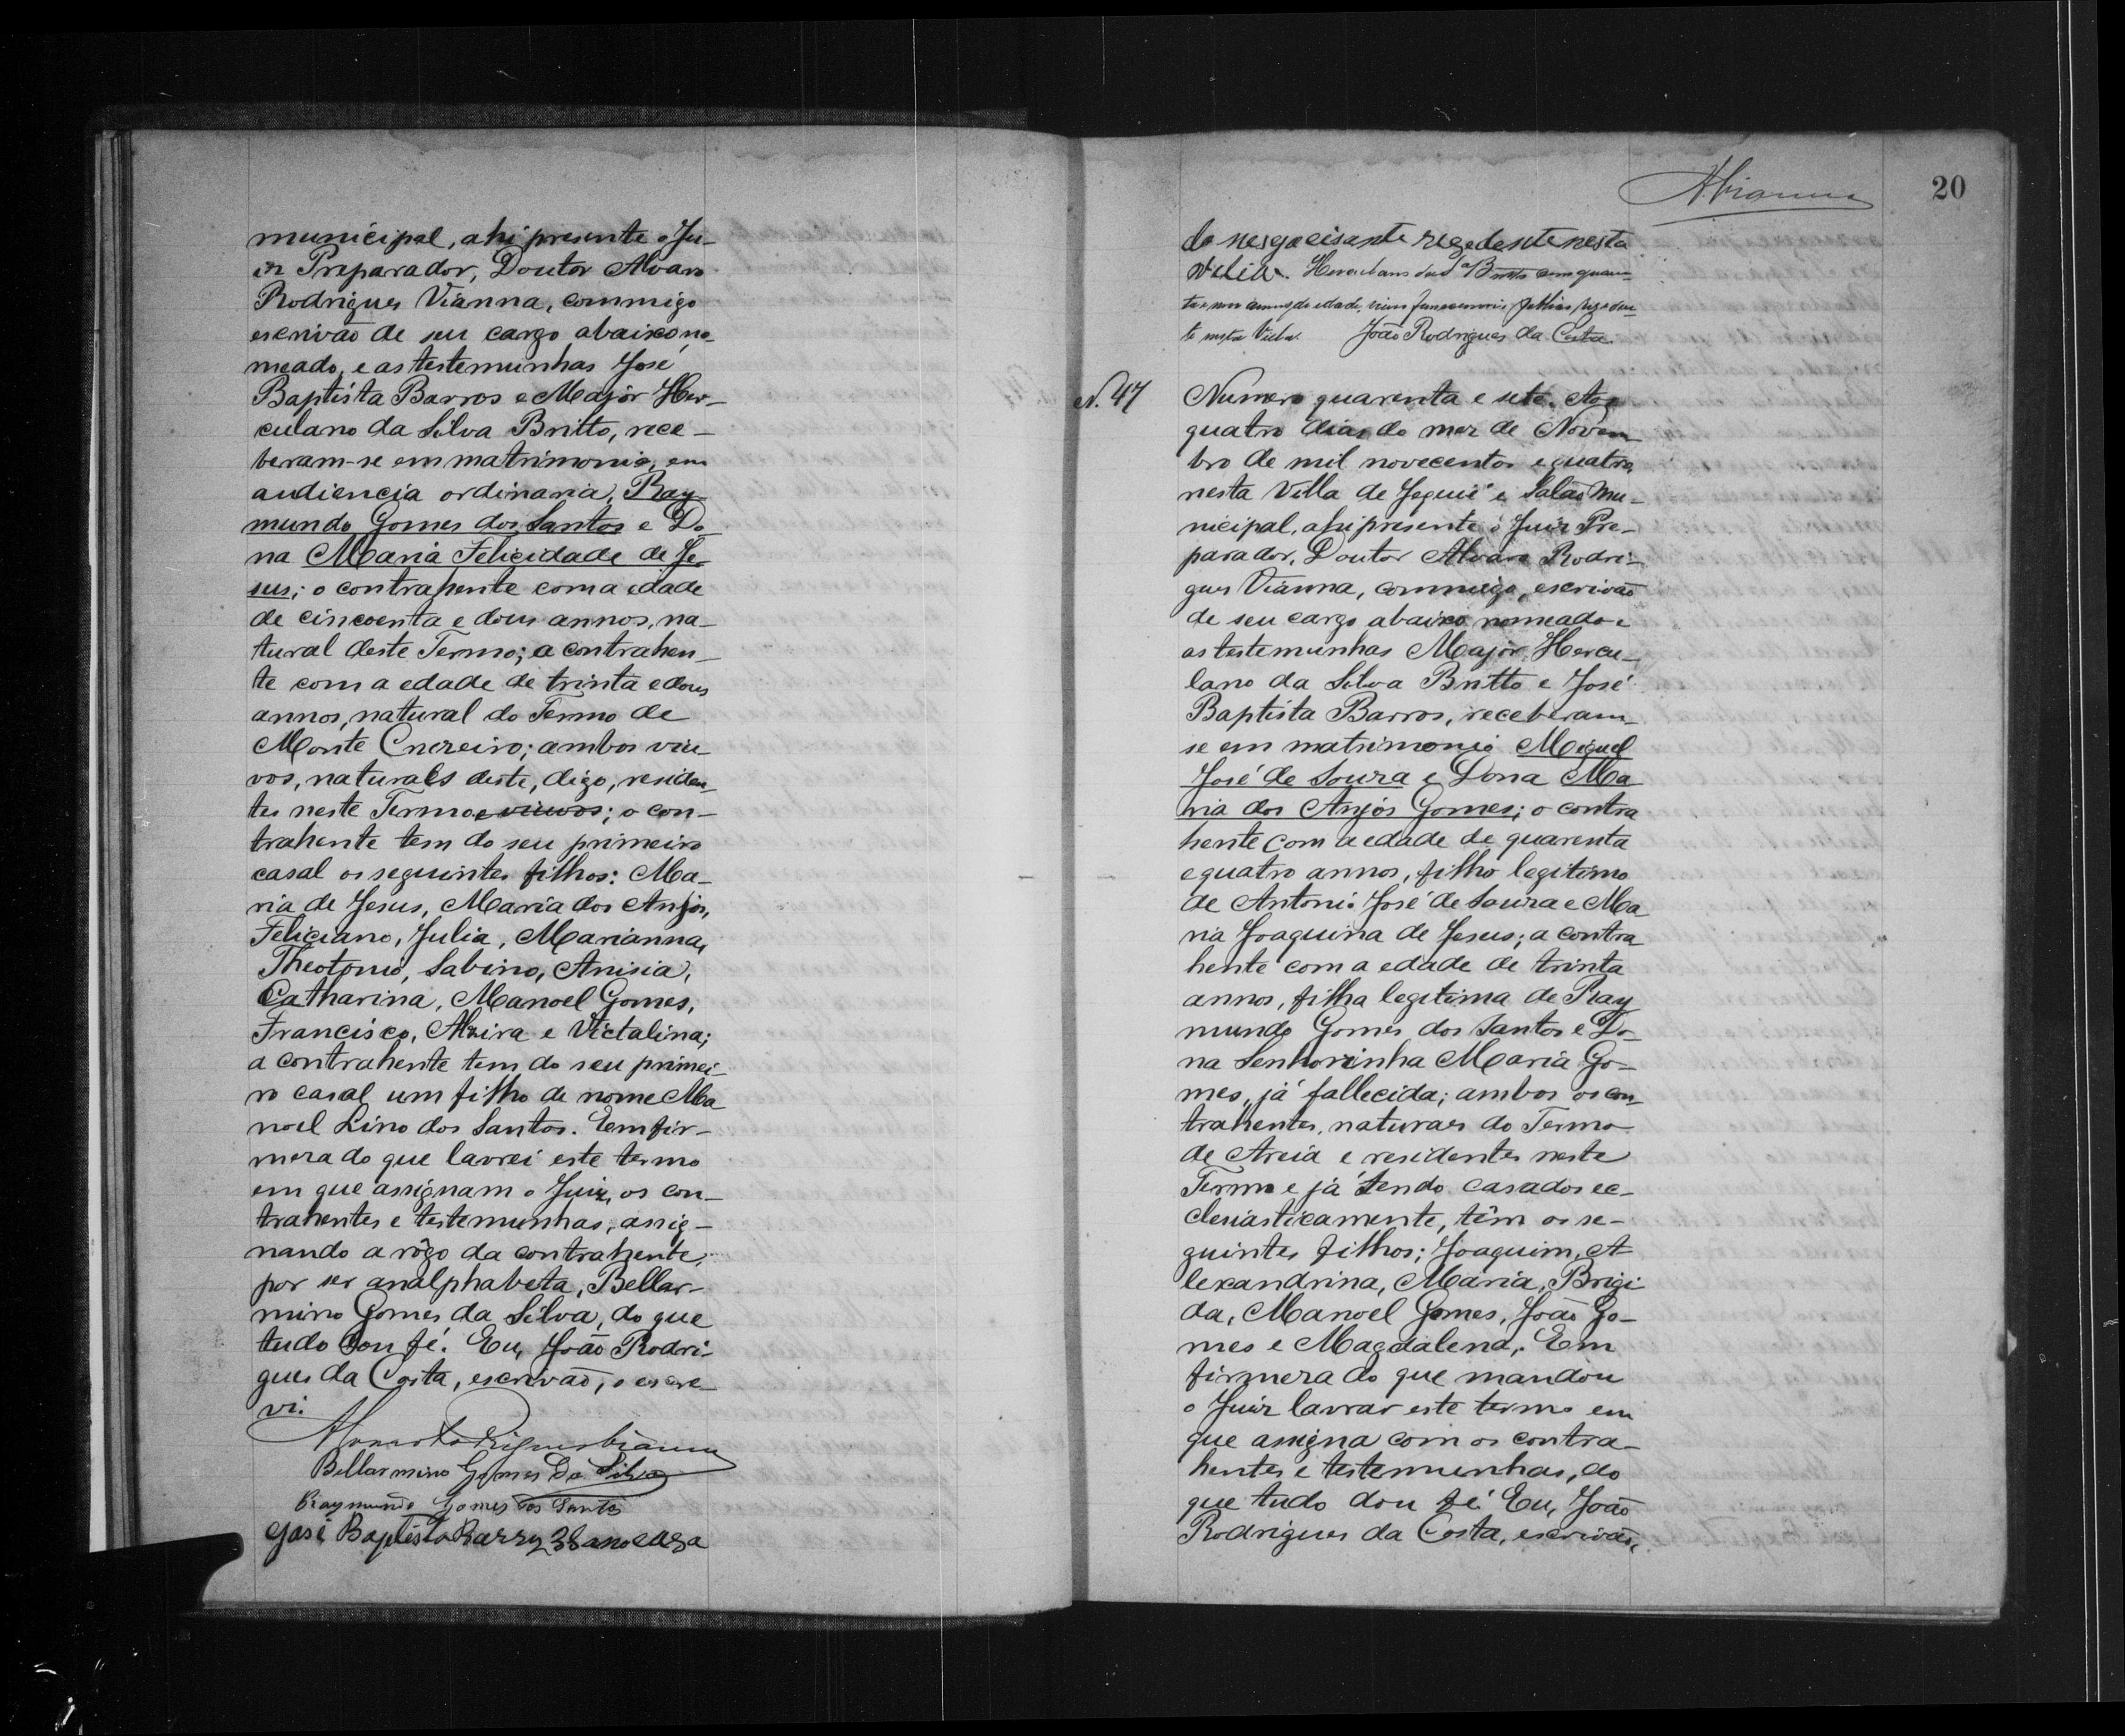 municipal, ahi presente o Ju-
iz Preparador, Doutor Alvaro
Rodrigues Vianna, commigo
escrivão de seu cargo abaixo, no-
meado, e as testemunhas José
Baptista Barros e Major Her-
culano da Silva Britto, rece-
beram-se em matrimonio, em
audiencia ordinaria, Ray
mundo Gomes dos Santos e Do
na Maria Felicidade de Je-
sus; o contrahente com a edade
de cincoenta e dous annos, na-
tural deste Termo; a contrahen-
te com a edade de trinta e dous
annos, natural do Termo de
Monte Cruzeiro; ambos viu
vos, naturaes deste, digo, residen-
tes neste Termo e viuvos; o con-
trahente tem do seu primeiro
casal os seguintes filhos: Ma-
ria de Jesus, Maria dos Anjos,
Feliciano, Julia, Marianna,
Theotonio, Sabino, Anisia,
Catharina, Manoel Gomes,
Francisco, Alzira e Victalina;
a contrahente tem do seu primei-
ro casal um filho de nome Ma
noel Lino dos Santos. Em fir-
meza do que lavrei este termo
em que assignam o Juiz, os con-
trahentes e testemunhas, assig-
nando a rôgo da contrahente,
por ser analphabeta, Bellar-
mino Gomes da Silva, do que
tudo dou fé. Eu, João Rodri-
gues da Costa, escrivão, o escre-
vi.
Alvaro Rodrigues Vianna
Bellarmino Gomes da Silva
Raymundo Gomes dos Santos
José Baptista Barros 38 ano
20
AVianna
do nesgocisante rezedente nesta
Vilia. Herculano da Sª Britto
annos de edade
te nesta Villa. João Rodrigues da Costa.
N. 47
Numero quarenta e sete. Aos
quatro dias do mez de Novem
bro de mil novecentos e quatro,
nesta Villa de Jequié e Salão Mu-
nicipal, ahi presente o Juiz Pre-
parador, Doutor Alvaro Rodri-
gues Vianna, commigo, escrivão
de seu cargo abaixo nomeado e
as testemunhas Major Hercu-
lano da Silva Britto e José
Baptista Barros, receberam-
se em matrimonio Miguel
José de Souza e Dona Ma
ria dos Anjos Gomes; o contra
hente com a edade de quarenta
e quatro annos, filho legitimo
de Antonio José de Souza e Ma
ria Joaquina de Jesus; a contra
hente com a edade de trinta
annos, filha legitima de Ray
mundo Gomes dos Santos e Do-
na Senhorinha Maria Go-
mes, já fallecida; ambos os con-
trahentes, naturaes do Termo
de Areia e residentes neste
Termo e já sendo casados ec-
clesiasticamente, têm os se-
guintes filhos; Joaquim, A
lexandrina, Maria, Brigi
da, Manoel Gomes, João Go-
mes e Magdalena. Em
firmeza do que mandou
o Juiz lavrar este termo em
que assigna com os contra-
hentes e testemunhas, do
que tudo dou fé. Eu, João
Rodrigues da Costa, escrivão,